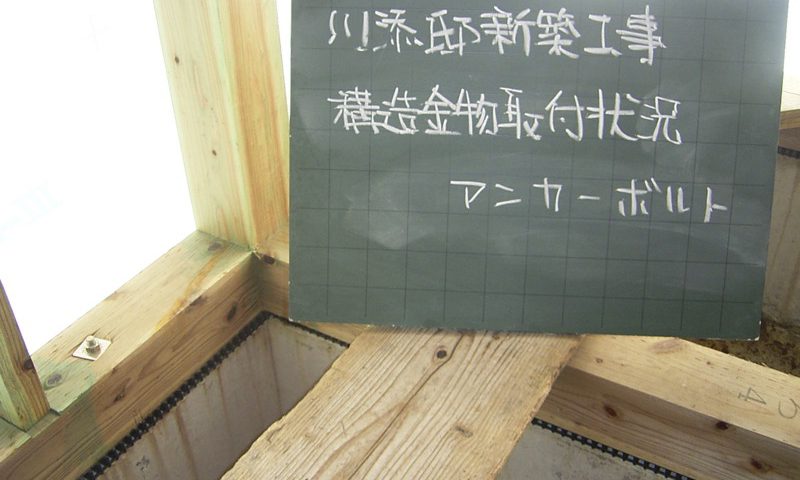 川添邸新築工事
構造金物取付状況
アンカーボルト